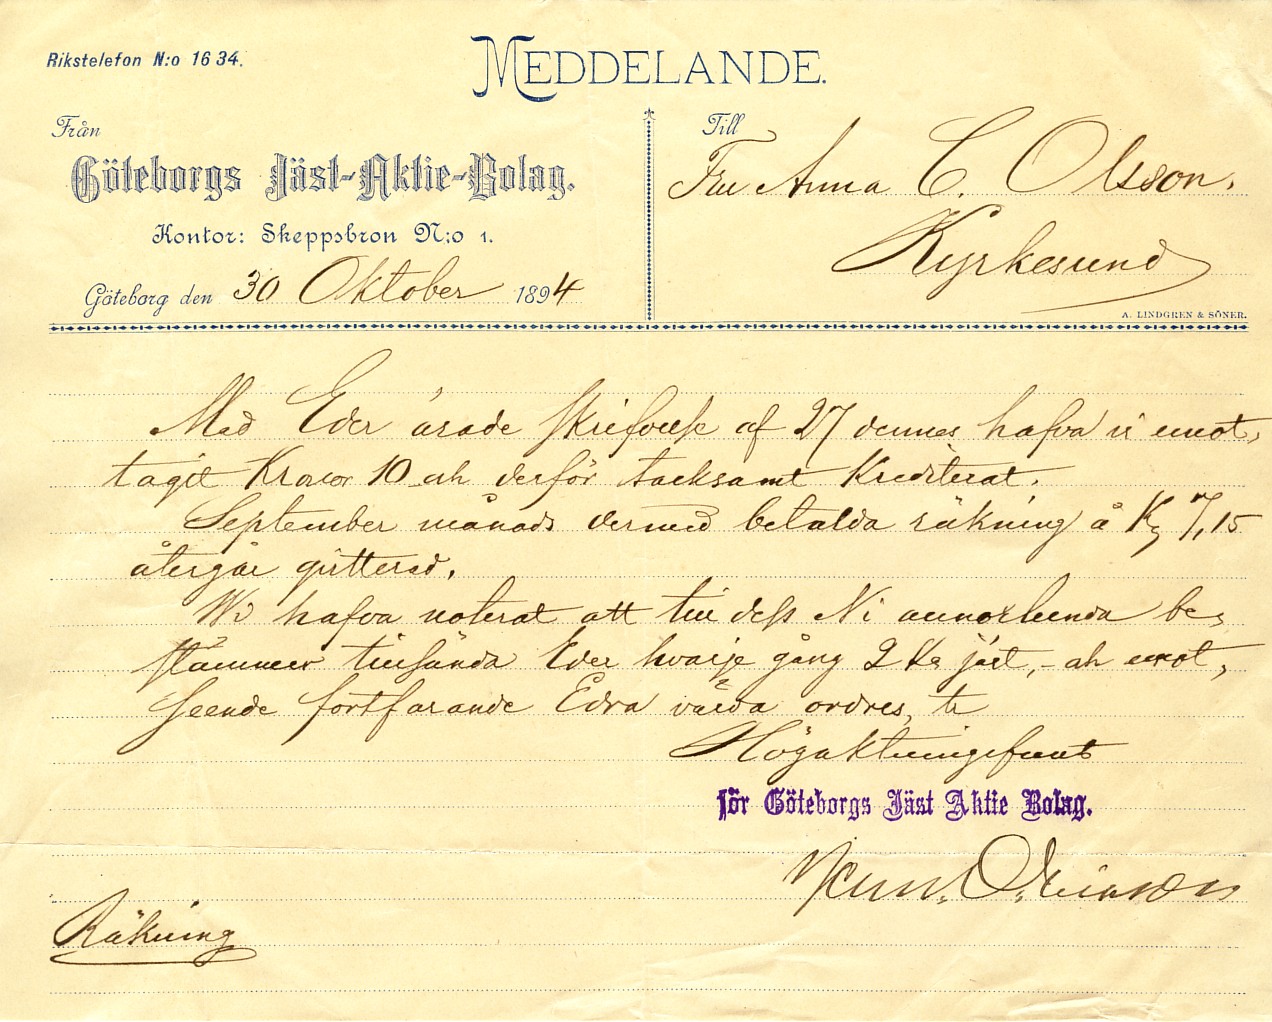 Rikstelefon N:o 1634.
MEDDELANDE.
Från
Göteborgs Jäst-Aktie-Bolag.
Kontor: Skeppsbron N:o 1.
Göteborg den 30 Oktober 1894
Till
Fru Anna C. Olsson.
Kyrkesund
A. LINDGREN & SÖNER.
Med Eder ärade skrifvelse af 27 dennes hafva vi emot,
tagit Kronor 10 och derför tacksamt Krediterat.
September månads dermed betalda räkning å Kr 7,15
återgår qvitterad.
Vi hafva noterat att till dess Ni annorlunda be,
stämmer tillsända Eder hvarje gång 2 Ko jäst, - och emot,
seende fortfarande Edra värda ordres, te
Högaktningsfullt
för Göteborgs Jäst Aktie Bolag.
Räkning